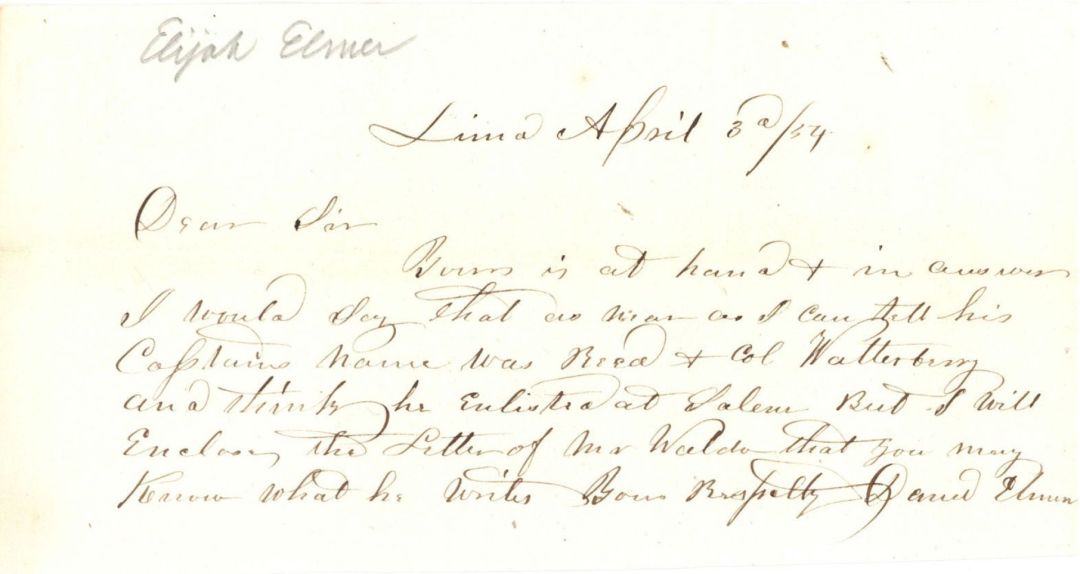 Elijah Elmer
Lima April 3d/54
Dear Sir
Yours is at hand & in answer
I would Say that as near as I can tell his
Captains Name was Reed & Col Watterberry
and think he Enlisted at Salem But I Will
Enclose the Letter of Mr Waldo that you may
Know what he writes Yours Respectly David Elmer